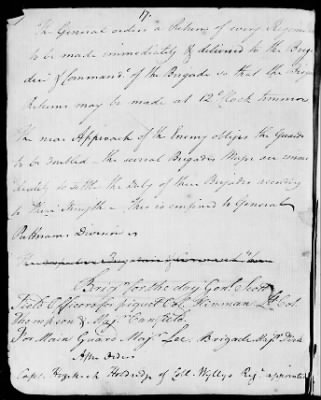 17.
The General orders a Return of every Regiment
to be made immediately & delivered to the Brig
& Command.g of the Brigade so that the Brigade
Returns may be made at 12 oClock tomorrow
The near Approach of the Enemy obliges the Guards
to be doubled - the several Brigades Majors are imme
diately to settle the duty of their Brigades according
to their Strength - This is confined to General
Putmans Division
Brigr for the day Genl. Scott
Field Officers for picquet Col. Hinman Lt. Col.
Thompson & Majr. Canfield
For Main Guard Majr. Lee. Brigade Majr. Dish
After Orders
Capt. Hezekiah Holdridge of Coll. Wyllys Regt. appointed